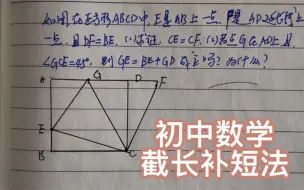 如图,在正方形ABCD中,E是AB上一点,F是AD延长线上
一点,且DF=BE,(1)求证:CE=CF,(2)若点G在AD上,且
∠GCE=45°,则GE=BE+GD成立吗?为什么?
A
G
D
F
E
B
C
初中数学
截长补短法